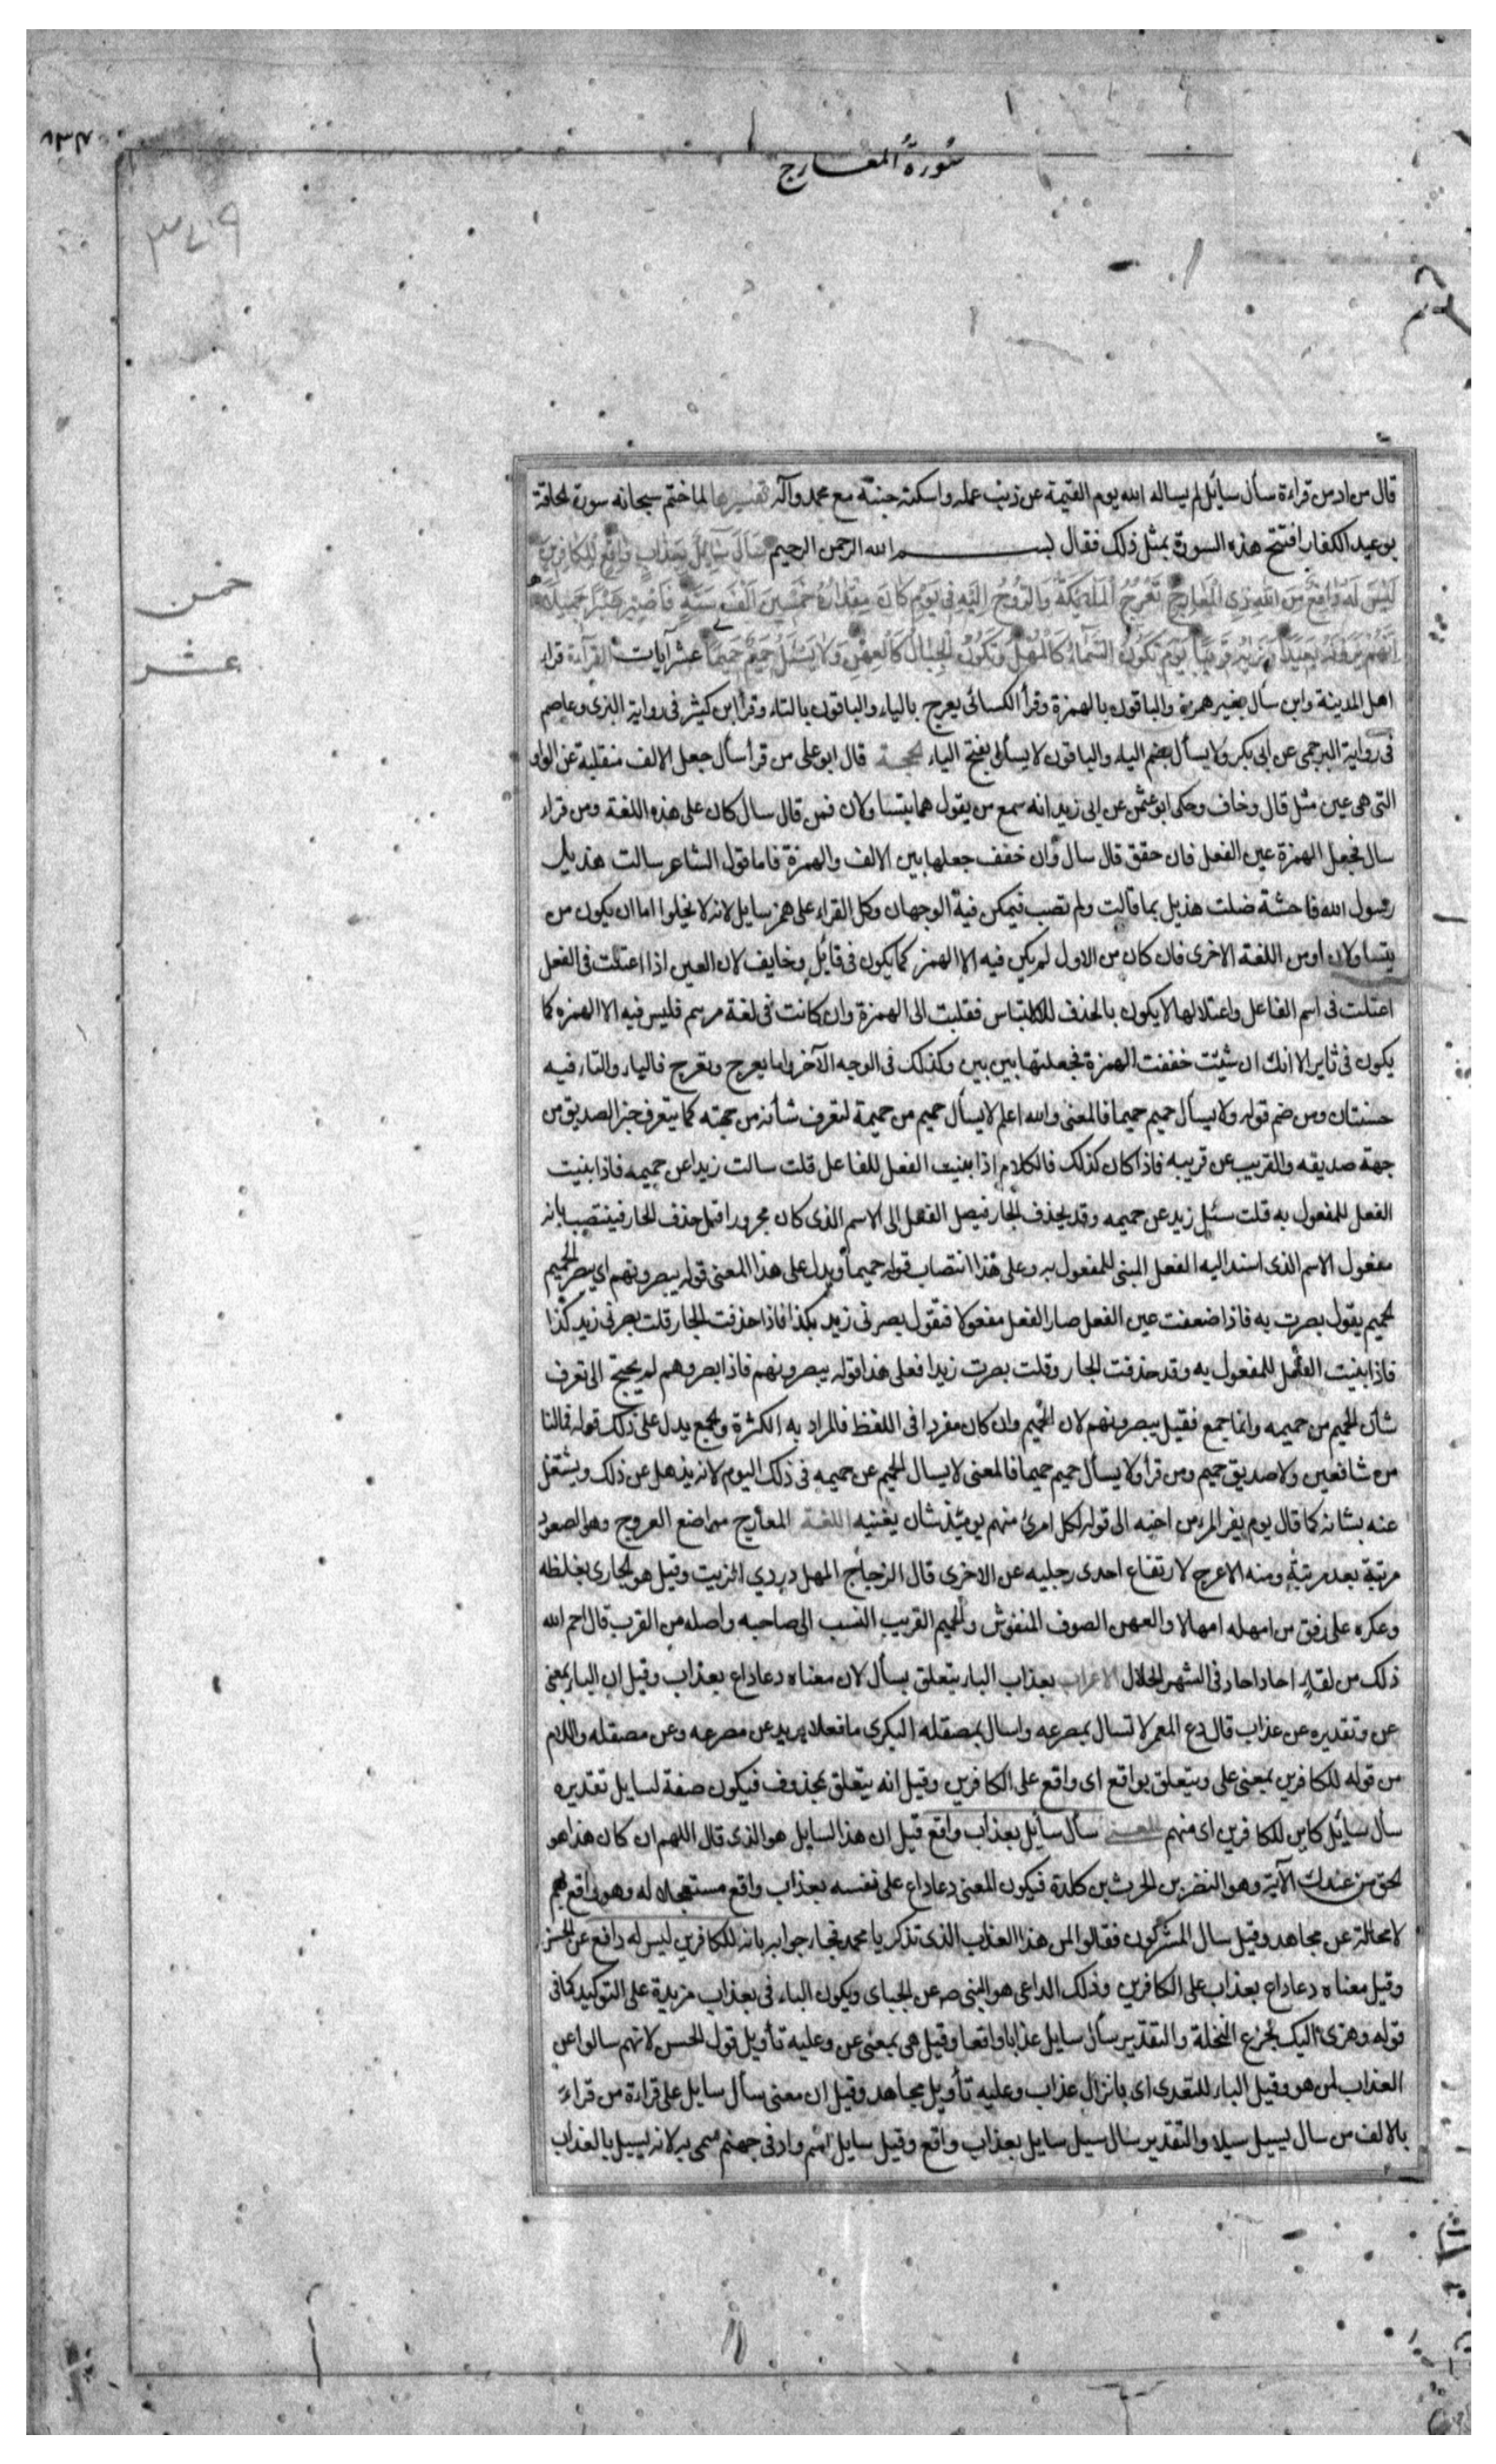 سورة المعارج
خمس
عشر
قال من ادمن قراءة سأل سائل لم يساله الله يوم القيمة عن ذنب عمله واسكنه جنته مع محمد وآله تفسيرها لما ختم سبحانه سورة الحاقة
بوعيد الكفار افتتح هذه السورة بمثل ذلك فقال بسم الله الرحمن الرحيم سَأَلَ سَآئِلٌ بِعَذَابٍ وَاقِعٍ لِلْكَافِرِينَ
لَيْسَ لَهُ دَافِعٌ مِنَ اللهِ ذِي الْمَعَارِجِ تَعْرُجُ الْمَلٰئِكَةُ وَالرُّوحُ اِلَيْهِ فِي يَوْمٍ كَانَ مِقْدَارُهُ خَمْسِينَ اَلْفَ سَنَةٍ فَاصْبِرْ صَبْرًا جَمِيلًا
اِنَّهُمْ يَرَوْنَهُ بَعِيدًا وَنَرٰيهُ قَرِيبًا يَوْمَ تَكُونُ السَّمَآءُ كَالْمُهْلِ وَتَكُونُ الْجِبَالُ كَالْعِهْنِ وَلَا يَسْئَلُ حَمِيمٌ حَمِيمًا عشر آيات القرآءة قراء
اهل المدينة وابن سال بغير همزة والباقون بالهمزة وقرأ الكسائى يعرج بالياء والباقون بالتاء وقرأ ابن كثير فى رواية البزى وعاصم
فى رواية البرجمى عن ابى بكر ولا يسأل بضم الياء والباقون لا يسأل بفتح الياء الحجة قال ابو على من قرأ سال جعل الالف منقلبة عن الواو
التى هى عين مثل قال وخاف وحكى ابو عثمن عن ابى زيد انه سمع من يقول هما يتساولان فمن قال سال كان على هذه اللغة ومن قراء
سال فجعل الهمزة عين الفعل فان حقق قال سال وان خفف جعلها بين الالف والهمزة فاما قول الشاعر سالت هذيل
رسول الله فاحشة ضلت هذيل بما قالت ولم تصب فيمكن فيه الوجهان وكل القراء على همز سايل لانه لا يخلوا اما ان يكون من
يتساولان او من اللغة الاخرى فان كان من الاول لم يكن فيه الا الهمز كما يكون فى قائل وخايف لان العين اذا اعتلت فى الفعل
اعتلت فى اسم الفاعل واعتلالها لا يكون بالحذف للالتباس فقلبت الى الهمزة وان كانت فى لغة من همز فليس فيه الا الهمزه كما
يكون فى ثاير الا انك ان شئت خففت الهمزة فجعلتها بين بين وكذلك فى الوجه الآخر واما يعرج وتعرج فالياء والتاء فيه
حسنتان ومن ضم قوله ولا يسأل حميم حميما فالمعنى والله اعلم لا يسأل حميم من حميمة لتعرف شأنه من جهته كما يتعرف خبر الصديق من
جهة صديقه والقريب عن قريبه فاذا كان كذلك فالكلام اذا بنيت الفعل للفاعل قلت سالت زيدا عن حميمه فاذا بنيت
الفعل للمفعول به قلت سئل زيد عن حميمه وقد يحذف الجار فيصل الفعل الى الاسم الذى كان مجرورا قبل حذف الجار فينتصب بانه
مفعول الاسم الذى اسند اليه الفعل المبنى للمفعول به وعلى هذا انتصاب قوله حميما ويدل على هذا المعنى قوله يبصرونهم اى يبصر الحميم
الحميم يقول بصرت به فاذا ضعفت عين الفعل صار الفعل مفعولا فتقول بصرنى زيد بكذا فاذا حذفت الجار قلت بصرنى زيد كذا
فاذا بنيت الفعل للمفعول به وقد حذفت الجار وقلت بصرت زيدا فعلى هذا قوله يبصرونهم فاذا بصروهم لم يحتج الى تعرف
شأن الحميم من حميمه وانما جمع فقيل يبصرونهم لان الحميم وان كان مفردا فى اللفظ فالمراد به الكثرة والجمع يدل على ذلك قوله فمالنا
من شافعين ولا صديق حميم ومن قرأ ولا يسأل حميم حميما فالمعنى لا يسال الحميم عن حميمه فى ذلك اليوم لانه يذهل عن ذلك ويشتغل
عنه بشانه كما قال يوم يفر المرء من اخيه الى قوله لكل امرئ منهم يومئذ شان يغنيه اللغة المعارج مواضع العروج وهو الصعود
مرتبة بعد مرتبة ومنه الاعرج لارتفاع احدى رجليه عن الاخرى قال الزجاج المهل دردي الزيت وقيل هو الجارى بغلظه
وعكره على رفق من امهله امهالا والعهن الصوف المنفوش والحميم القريب النسب الى صاحبه واصله من القرب قال احم الله
ذلك من لقاء احاد احاد فى الشهر الحلال الاعراب بعذاب الباء يتعلق بسأل لان معناه دعا داع بعذاب وقيل ان الباء بمعنى
عن وتقديره عن عذاب قال دع المعمر لا تسال بمصرعه واسال بمصقله البكرى ما فعلا يريد عن مصرعه وعن مصقله واللام
من قوله للكافرين بمعنى على ويتعلق بواقع اى واقع على الكافرين وقيل انه يتعلق بمحذوف فيكون صفة لسايل تقديره
سأل سائل كاين للكافرين اى منهم المعنى سأل سائل بعذاب واقع قيل ان هذا السايل هو الذى قال اللهم ان كان هذا هو
الحق من عندك الآية وهو النضر بن الحرث بن كلدة فيكون المعنى دعا داع على نفسه بعذاب واقع مستعجلا له وهو واقع بهم
لا محالة عن مجاهد وقيل سال المشركون فقالوا لمن هذا العذاب الذى تذكر يا محمد فجاء جوابه بانه للكافرين ليس له دافع عن الحسن
وقيل معناه دعا داع بعذاب على الكافرين وذلك الداعى هو النبى ص عن الجباى ويكون الباء فى بعذاب مزيدة على التوكيد كما فى
قوله وهزى اليك بجزع النخلة والتقدير سأل سايل عذابا واقعا وقيل هى بمعنى عن وعليه تأويل قول الحسن لانهم سالوا عن
العذاب لمن هو وقيل الباء للتعدى اى بانزال عذاب وعليه تأويل مجاهد وقيل ان معنى سأل سايل على قراءة من قراء
بالالف من سال يسيل سيلا والتقدير سال سيل سايل بعذاب واقع وقيل سايل اسم واد فى جهنم سمى به لانه يسيل بالعذاب